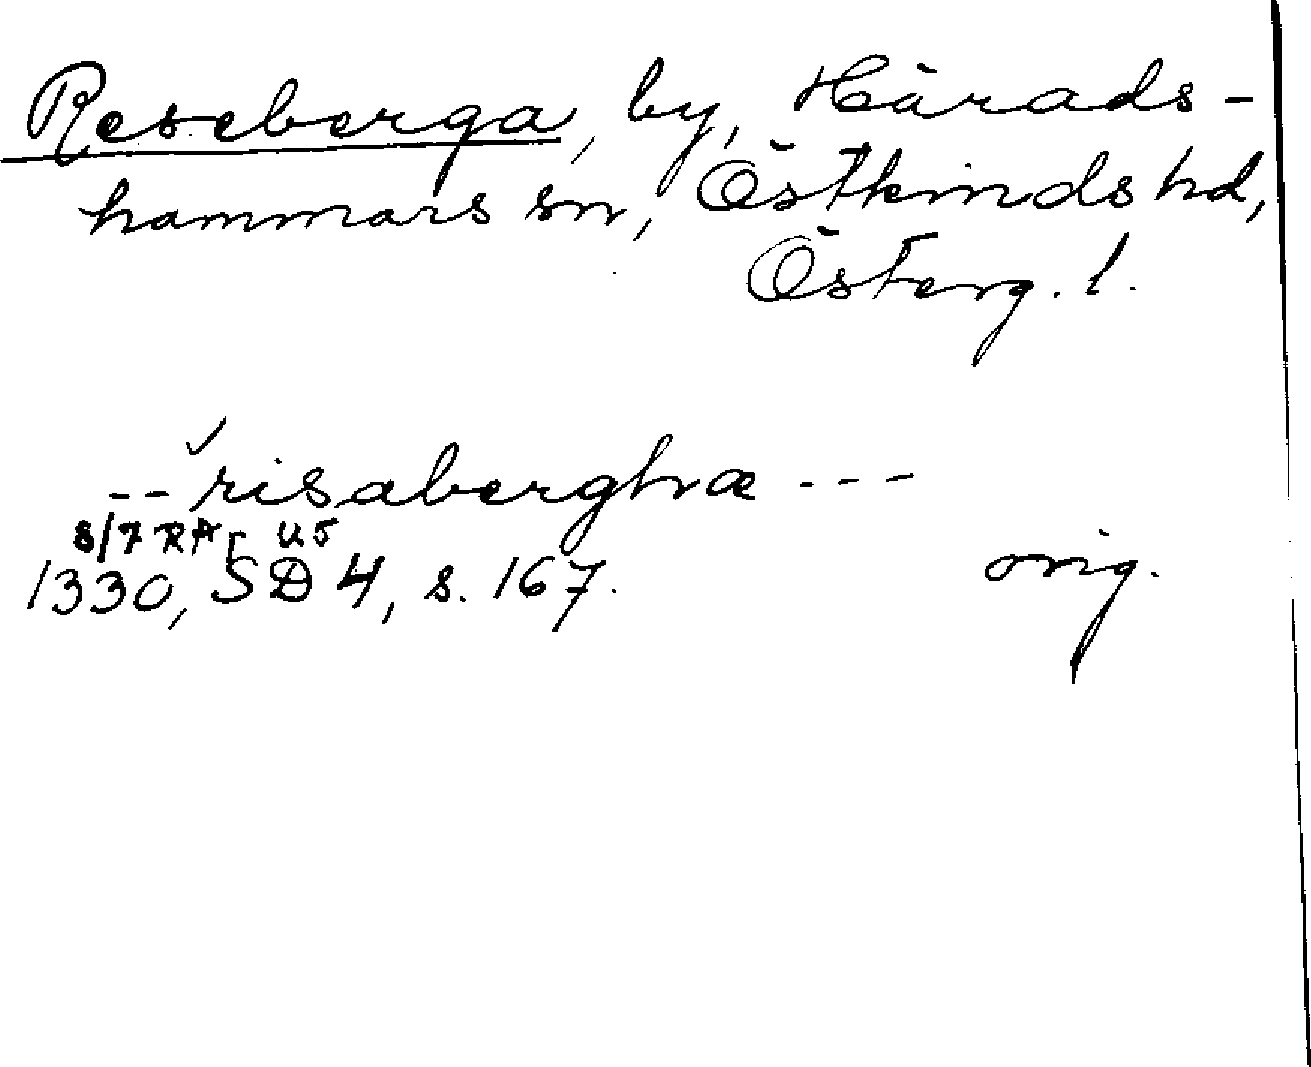 Reseberga, by, Härads-
hammars sn, Östkinds hd,
Österg. l.
-- risaberghæ ---
8/7 RA, U5
1330, SD 4, s. 167.
orig.